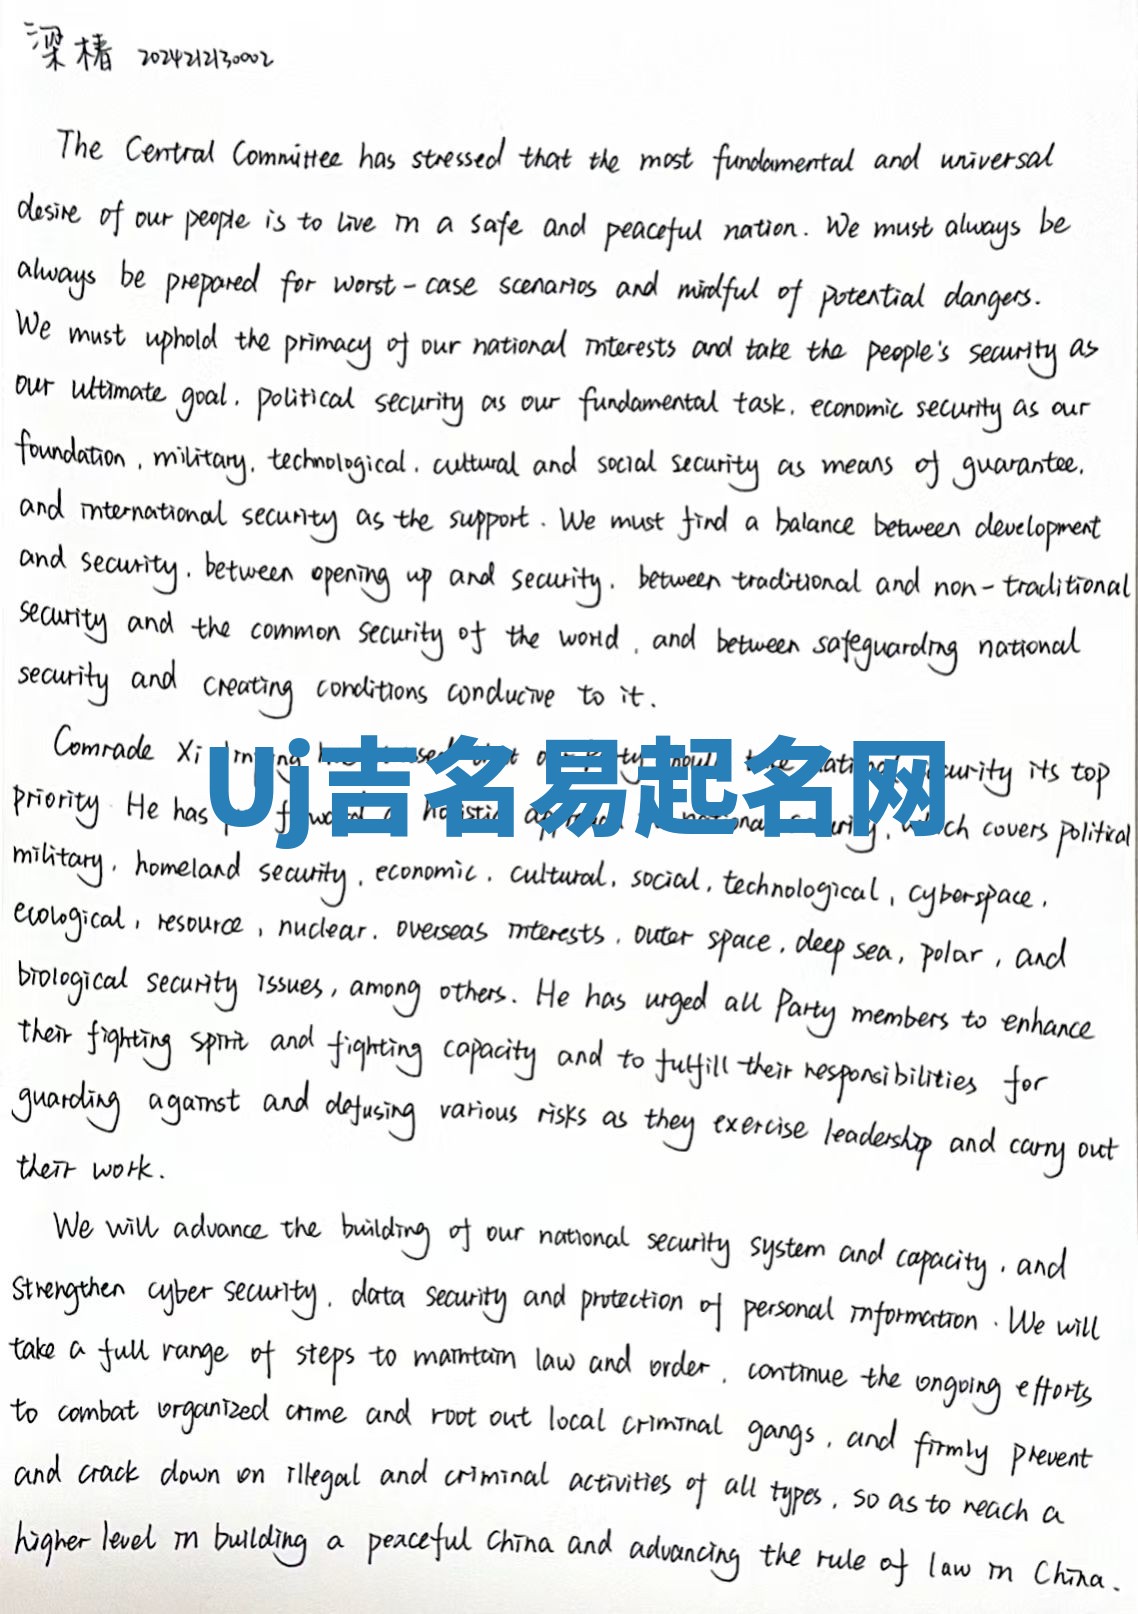 梁椿 2024212130002
The Central Committee has stressed that the most fundamental and universal
desire of our people is to live in a safe and peaceful nation. We must always be
always be prepared for worst-case scenarios and mindful of potential dangers.
We must uphold the primacy of our national interests and take the people's security as
our ultimate goal, political security as our fundamental task, economic security as our
foundation, military, technological, cultural and social security as means of guarantee,
and international security as the support. We must find a balance between development
and security, between opening up and security, between traditional and non-traditional
security and the common security of the world, and between safeguarding national
security and creating conditions conducive to it.
Comrade Xi national security its top
Uj吉名易起名网
priority. He has forward a holistic national security, which covers political
military, homeland security, economic, cultural, social, technological, cyberspace,
ecological, resource, nuclear, overseas interests, outer space, deep sea, polar, and
biological security issues, among others. He has urged all Party members to enhance
their fighting spirit and fighting capacity and to fulfill their responsibilities for
guarding against and defusing various risks as they exercise leadership and carry out
their work.
We will advance the building of our national security system and capacity, and
strengthen cyber security, data security and protection of personal information. We will
take a full range of steps to maintain law and order, continue the ongoing efforts
to combat organized crime and root out local criminal gangs, and firmly prevent
and crack down on illegal and criminal activities of all types, so as to reach a
higher level in building a peaceful China and advancing the rule of law in China.